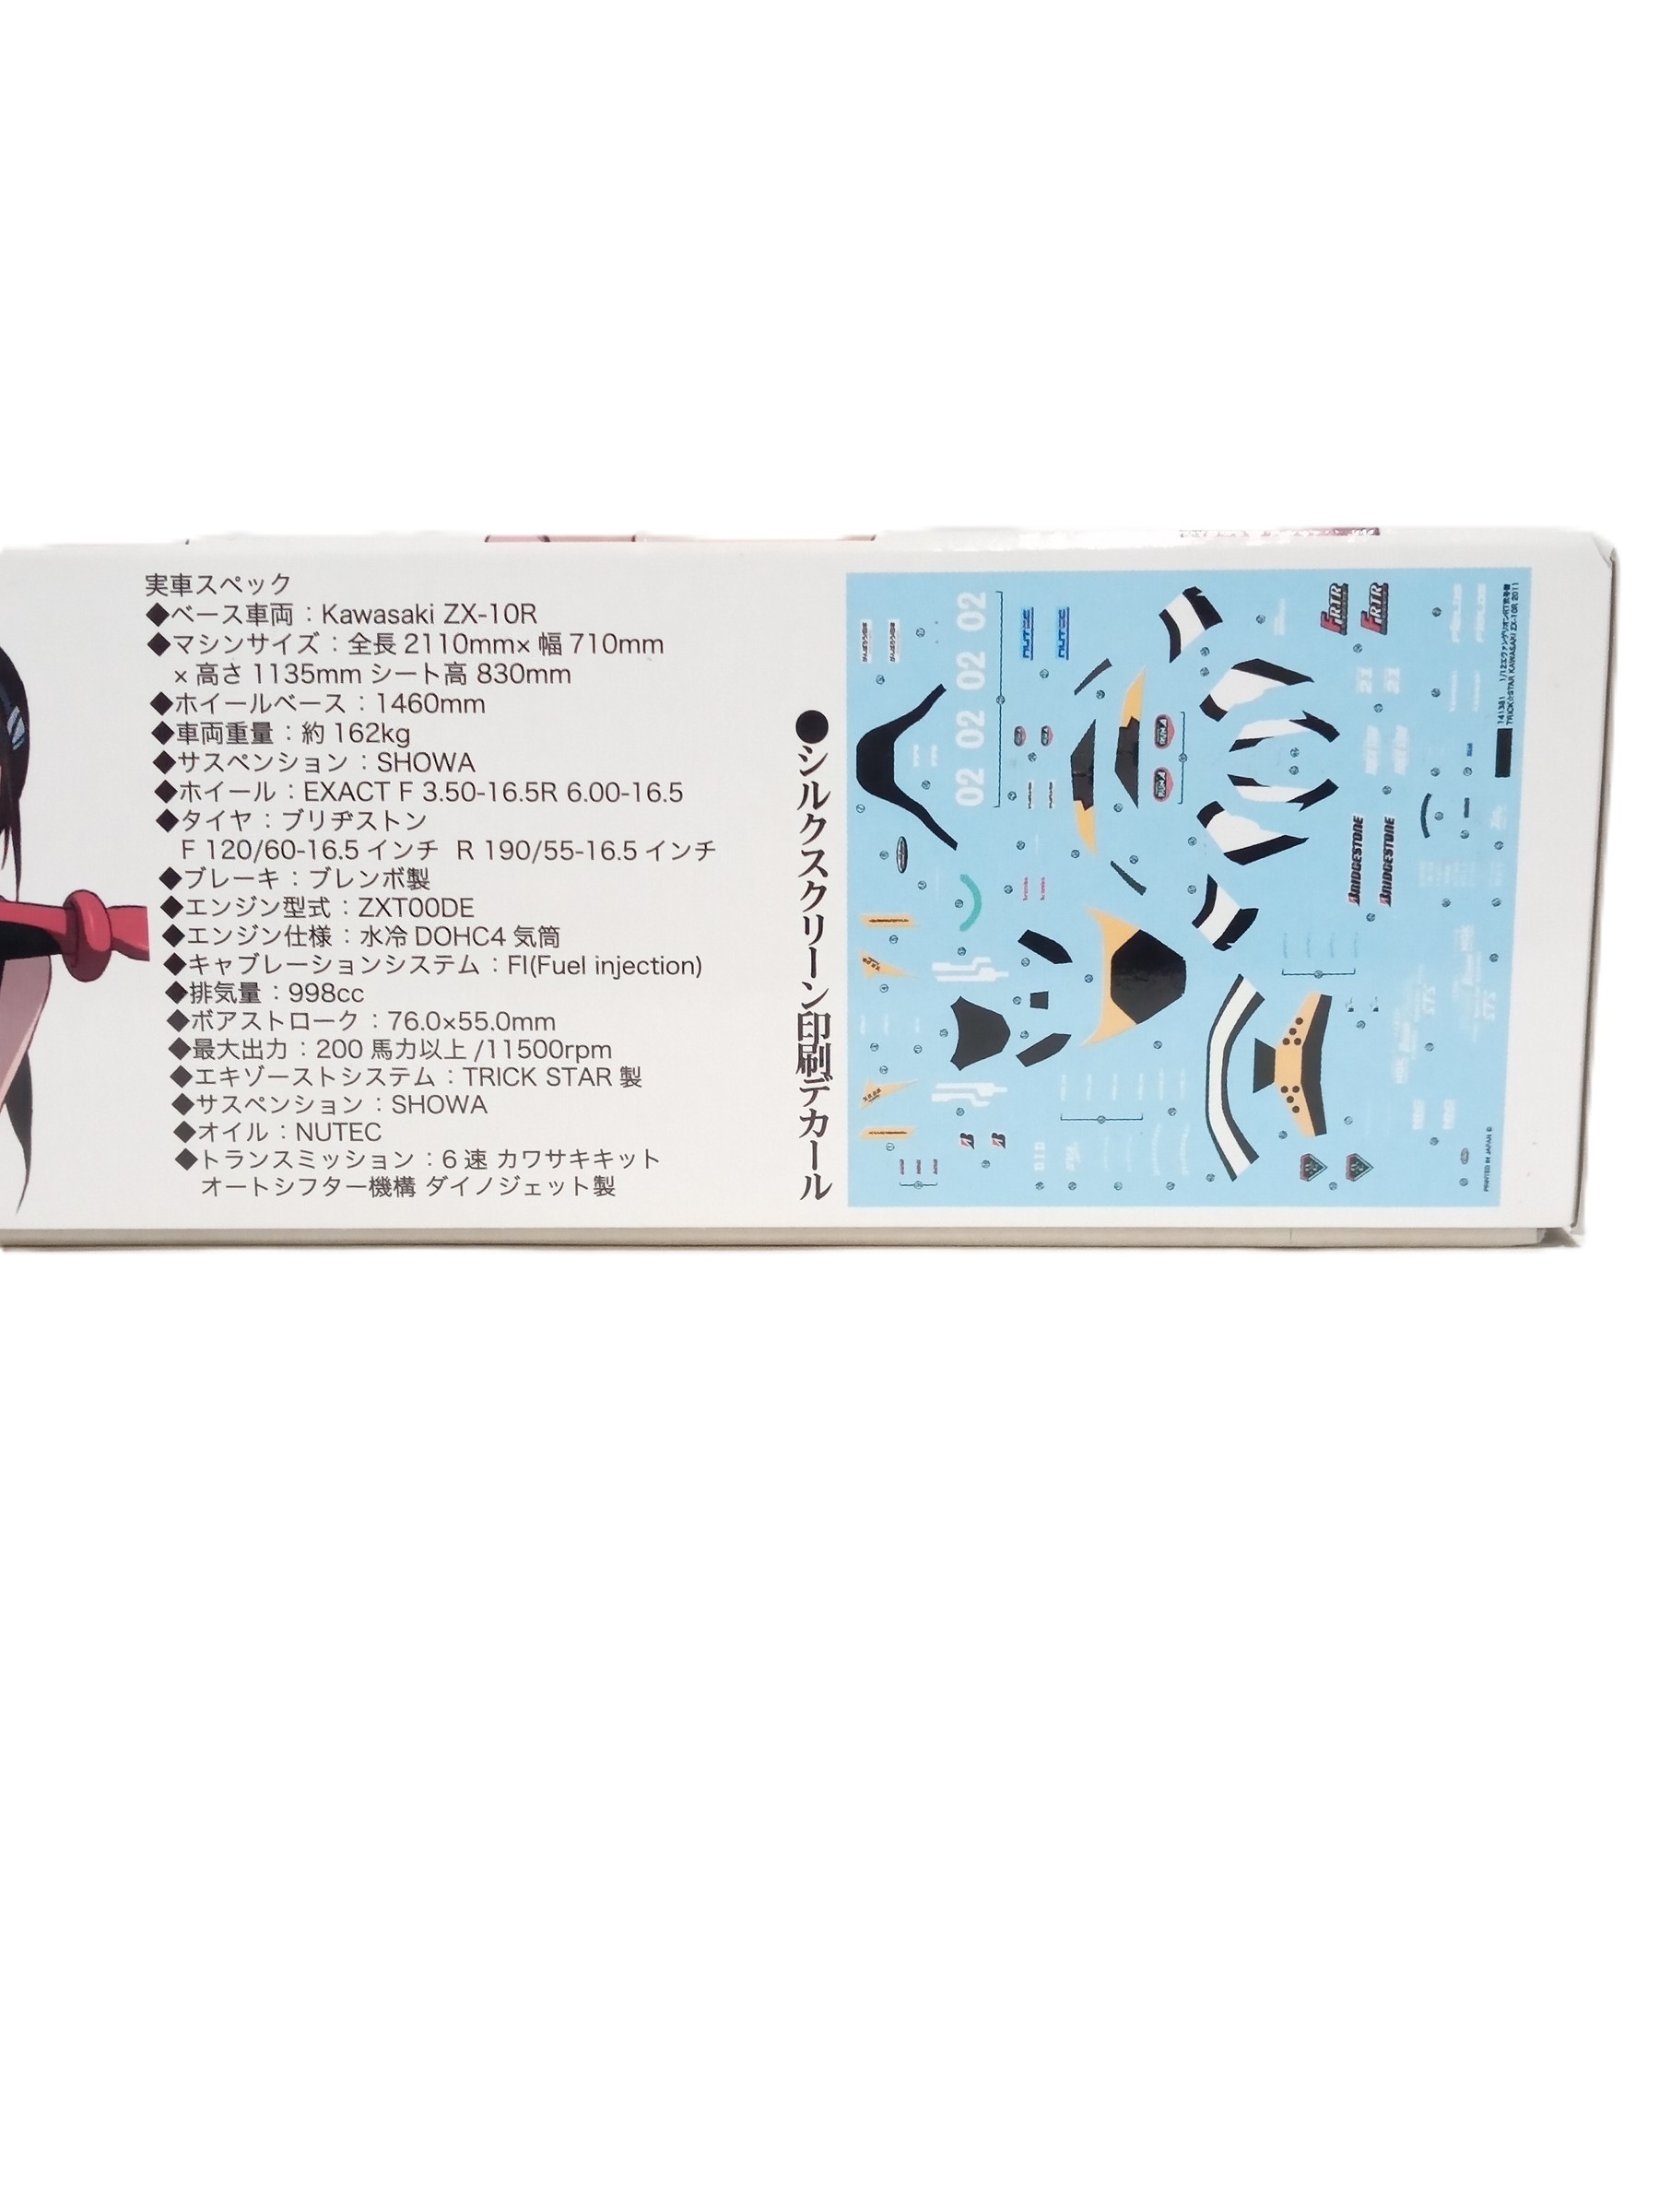 実車スペック
◆ベース車両：Kawasaki ZX-10R
◆マシンサイズ：全長2110mm×幅710mm
×高さ1135mm シート高830mm
◆ホイールベース：1460mm
◆車両重量：約162kg
◆サスペンション：SHOWA
◆ホイール：EXACT F 3.50-16.5R 6.00-16.5
◆タイヤ：ブリヂストン
F 120/60-16.5インチ R 190/55-16.5インチ
◆ブレーキ：ブレンボ製
◆エンジン型式：ZXT00DE
◆エンジン仕様：水冷DOHC4気筒
◆キャブレーションシステム：FI(Fuel injection)
◆排気量：998cc
◆ボアストローク：76.0×55.0mm
◆最大出力：200馬力以上/11500rpm
◆エキゾーストシステム：TRICK STAR製
◆サスペンション：SHOWA
◆オイル：NUTEC
◆トランスミッション：6速 カワサキキット
オートシフター機構 ダイノジェット製
●シルクスクリーン印刷デカール
02 02 02 02
NUTEC
NUTEC
FRTR
FRTR
21
21
BRIDGESTONE
BRIDGESTONE
D.I.D
TRICK☆STAR KAWASAKI ZX-10R 2011
PRINTED IN JAPAN